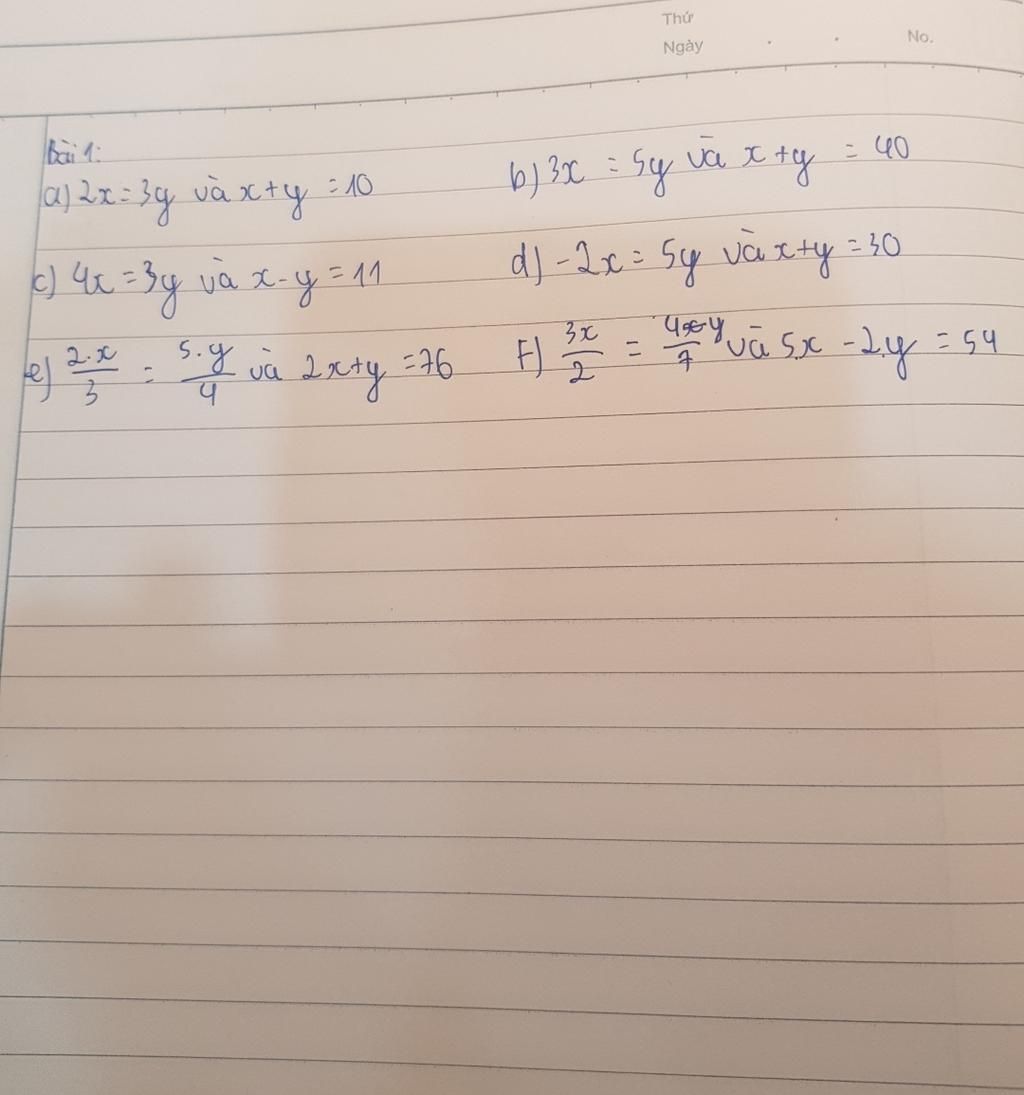 Thứ
Ngày . . No.
Bài 1:
a) 2x = 3y và x + y = 10 b) 3x = 5y và x + y = 40
c) 4x = 3y và x - y = 11 d) -2x = 5y và x + y = 30
e) 2.x/3 = 5.y/4 và 2x + y = 76 F) 3x/2 = 4y/7 và 5x - 2y = 54